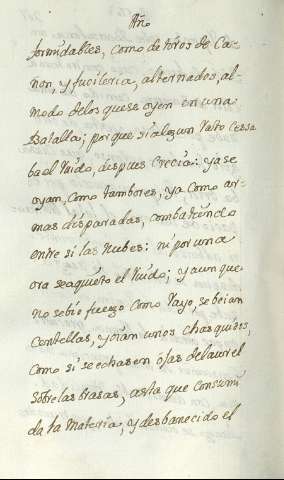 Año
formidables, como de tiros de Ca-
ñon, y fucileria, alternados, al-
modo delos que se oyen en una
Batalla; por que si algun rato cessa
ba el ruido, dispues crecia: ya se
oyan, como tambores, ya como ar-
mas disparadas, combatiendo
entre si las nubes: ni por una
ora se aquieto el ruido; y aun que
no se bio fuego como rayo, se beian
Centellas, y oian unos chasquidos,
como si se echasen ojas de laurel
sobre las brasas, asta que consumi
da la materia, y desbanecido el